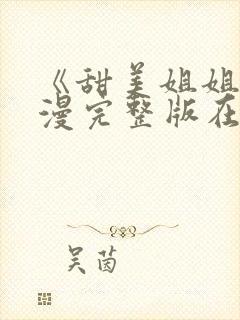 《甜美姐姐
漫完整版在
吴茵